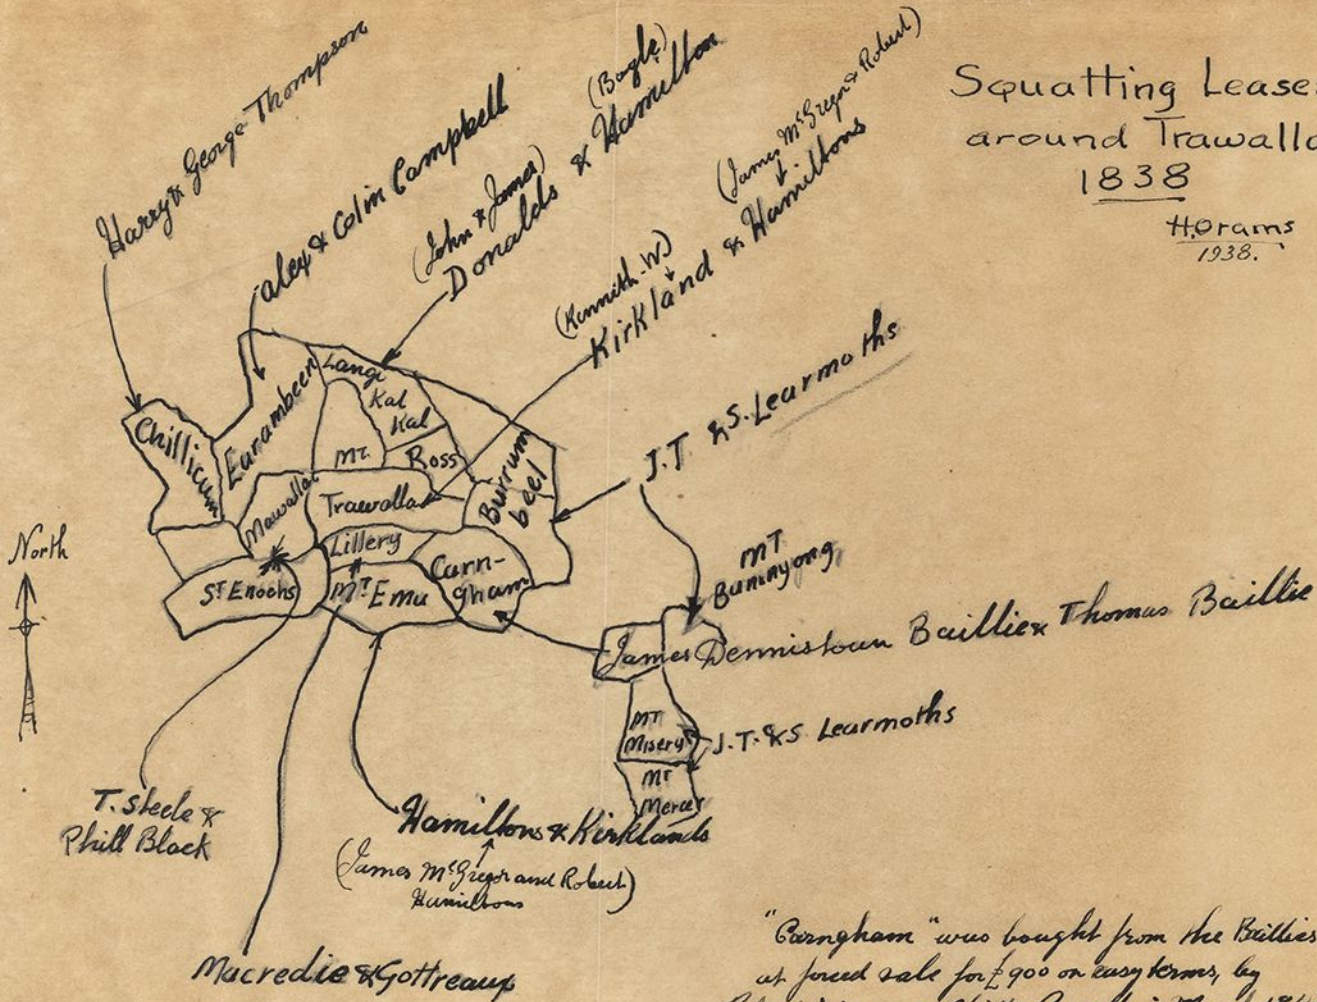 Squatting Lease
around Trawalla
1838
H.Orams
1938.
Harry & George Thompson
alex & Colin Campbell
(John & James)
Donalds & Hamilton
(Bogle)
(Kennith.W)
Kirkland & Hamiltons
(James McGregor & Robert)
J.T &S. Learmoths
Chillicum
Eurambeen
Langi
Kal
Kal
Mt.
Ross
Burrum
beel
Mawallac
Trawalla
Lillery
Carn-
gham
St Enochs
MT Emu
North
MT
Buninyong
James Dennistoun Baillie & Thomas Baillie
MT
Misery
J.T. &S Learmoths
MT
Mercer
T. Steele &
Phill Black
Hamiltons & Kirklands
(James McGregor and Robert)
Hamiltons
Macredie & Gottreaux
"Carngham" was bought from the Baillies
at forced sale for £900 on easy terms, by